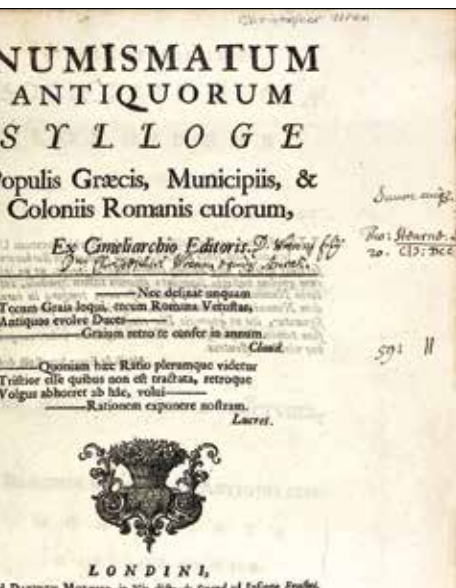 Christopher Wren
NUMISMATUM
ANTIQUORUM
SYLLOGE
Populis Græcis, Municipiis, &
Coloniis Romanis cusorum,
Ex Cimeliarchio Editoris.
Suum cuiq;
Tho: Hearne.
20.
———Nec desinat unquam
Tecum Graia loqui, tecum Romana Vetustas,
Antiquos evolve Duces———
———Graium retro te confer in annum
Claud.
59: 11
———Quoniam hæc Ratio plerumque videtur
Tristior esse quibus non est tractata, retroque
Volgus abhorret ab hâc, volui———
———Rationem exponere nostram.
Lucret.
LONDINI,